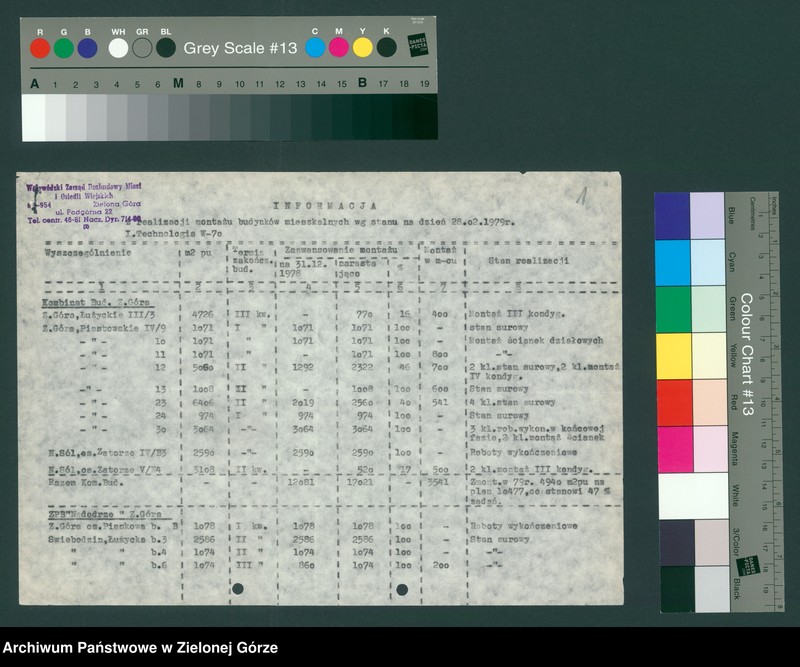 R G B WH GR BL Grey Scale #13 C M Y K DANES PICTA
A 1 2 3 4 5 6 M 8 9 10 11 12 13 14 15 B 17 18 19
Wojewódzki Zarząd Rozbudowy Miast
i Osiedli Wiejskich
Zielona Góra
ul. Podgórna 22
Tel. centr. 46-81 Nacz. Dyr.
1
INFORMACJA
realizacji montażu budynków mieszkalnych wg stanu na dzień 28.o2.1979r.
I.Technologia W-7o
Wyszczególnienie m2 pu Termin zakończ. bud. Zaawansowanie montażu na 31.12. 1978 narasta jąco % Montaż w m-cu Stan realizacji
1 2 3 4 5 6 7 8
Kombinat Bud. Z.Góra
Z.Góra,Łużyckie III/3 4726 III kw. - 77o 16 4oo Montaż III kondyg.
Z.Góra,Piastowskie IV/9 1o71 I " 1o71 1o71 1oo - stan surowy
-"- 1o 1o71 " 1o71 1o71 1oo - Montaż ścianek działowych
-"- 11 1o71 " - 1o71 1oo 8oo -"-
-"- 12 5o6o II " 1292 2322 46 7oo 2 kl.stan surowy,2 kl.montaż
IV kondyg.
-"- 13 1oo8 II " - 1oo8 1oo 6oo Stan surowy
-"- 23 64o6 II " 2o19 256o 4o 541 4 kl.stan surowy
-"- 24 974 I " 974 974 1oo - Stan surowy
-"- 3o 3o64 -"- 3o64 3o64 1oo - 3 kl.rob.wykon.w końcowej
fazie,2 kl.montaż ścianek
N.Sól,os.Zatorze IV/B3 259o -"- 259o 259o 1oo - Roboty wykończeniowe
N.Sól,os.Zatorze V/B4 31o8 II kw. - 52o 17 5oo 2 kl.montaż III kondyg.
Razem Kom.Bud. - 12o81 17o21 - 3541 Zmont.w 79r. 494o m2pu na
plan 1o477,co stanowi 47 %
zadań.
ZPB"Nadodrze " Z.Góra
Z.Góra os.Piaskowa b. B 1o78 I kw. 1o78 1o78 1oo - Roboty wykończeniowe
Świebodzin,Łużycka b.3 2586 II " 2586 2586 1oo - Stan surowy
" " b.4 1o74 II " 1o74 1o74 1oo - -"-
" " b.6 1o74 III " 86o 1o74 1oo 2oo -"-
Colour Chart #13
Blue Cyan Green Yellow Red Magenta White 3/Color Black
Centimetres Inches
DANES PICTA
Archiwum Państwowe w Zielonej Górze